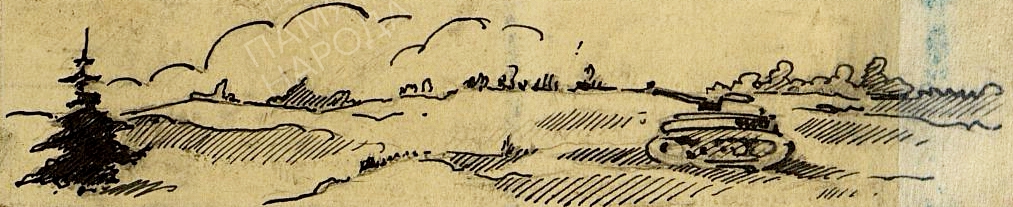 ПАМЯТЬ
НАРОДА